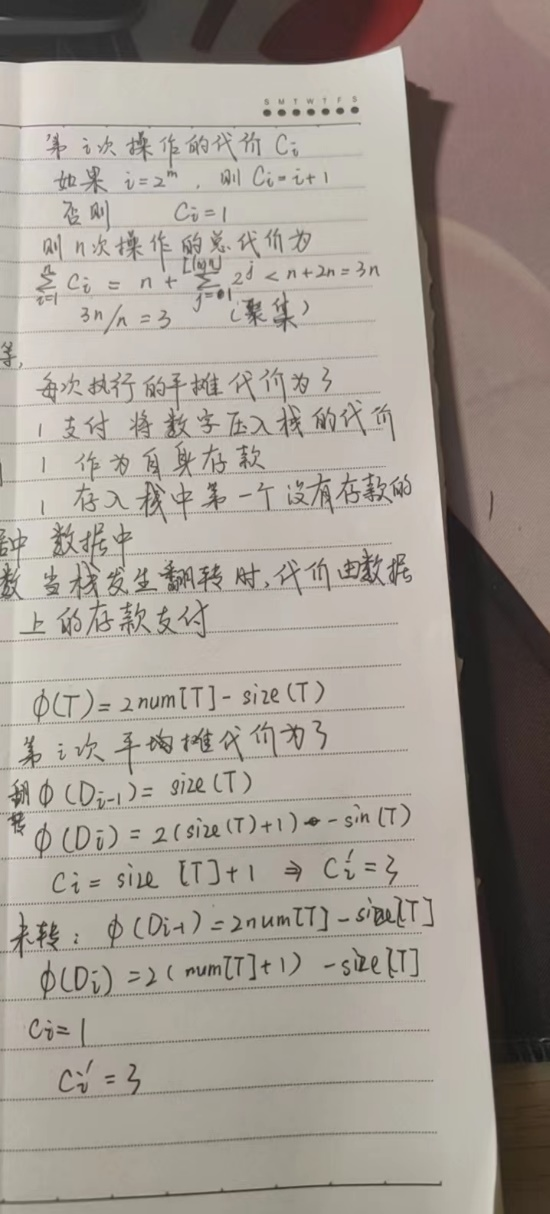 S M T W T F S
第 i 次操作的代价 Ci
如果 i=2^m, 则 Ci=i+1
否则 Ci=1
则 n 次操作的总代价为
∑_{i=1}^{n} Ci = n + ∑ 2^j < n+2n=3n
3n/n=3 (聚集)
等,
每次执行的平摊代价为3
1 支付 将数字压入栈的代价
1 作为自身存款
1 存入栈中第一个没有存款的
中 数据中
数 当栈发生翻转时,代价由数据
上的存款支付
φ(T)=2num[T]-size(T)
第 i 次平均摊代价为3
翻转 φ(Di-1)= size(T)
φ(Di)=2(size(T)+1) -sin(T)
Ci = size [T]+1 ⇒ Ci'=3
未转: φ(Di-1)=2num[T]-size[T]
φ(Di)=2(num[T]+1) -size[T]
Ci=1
Ci'=3